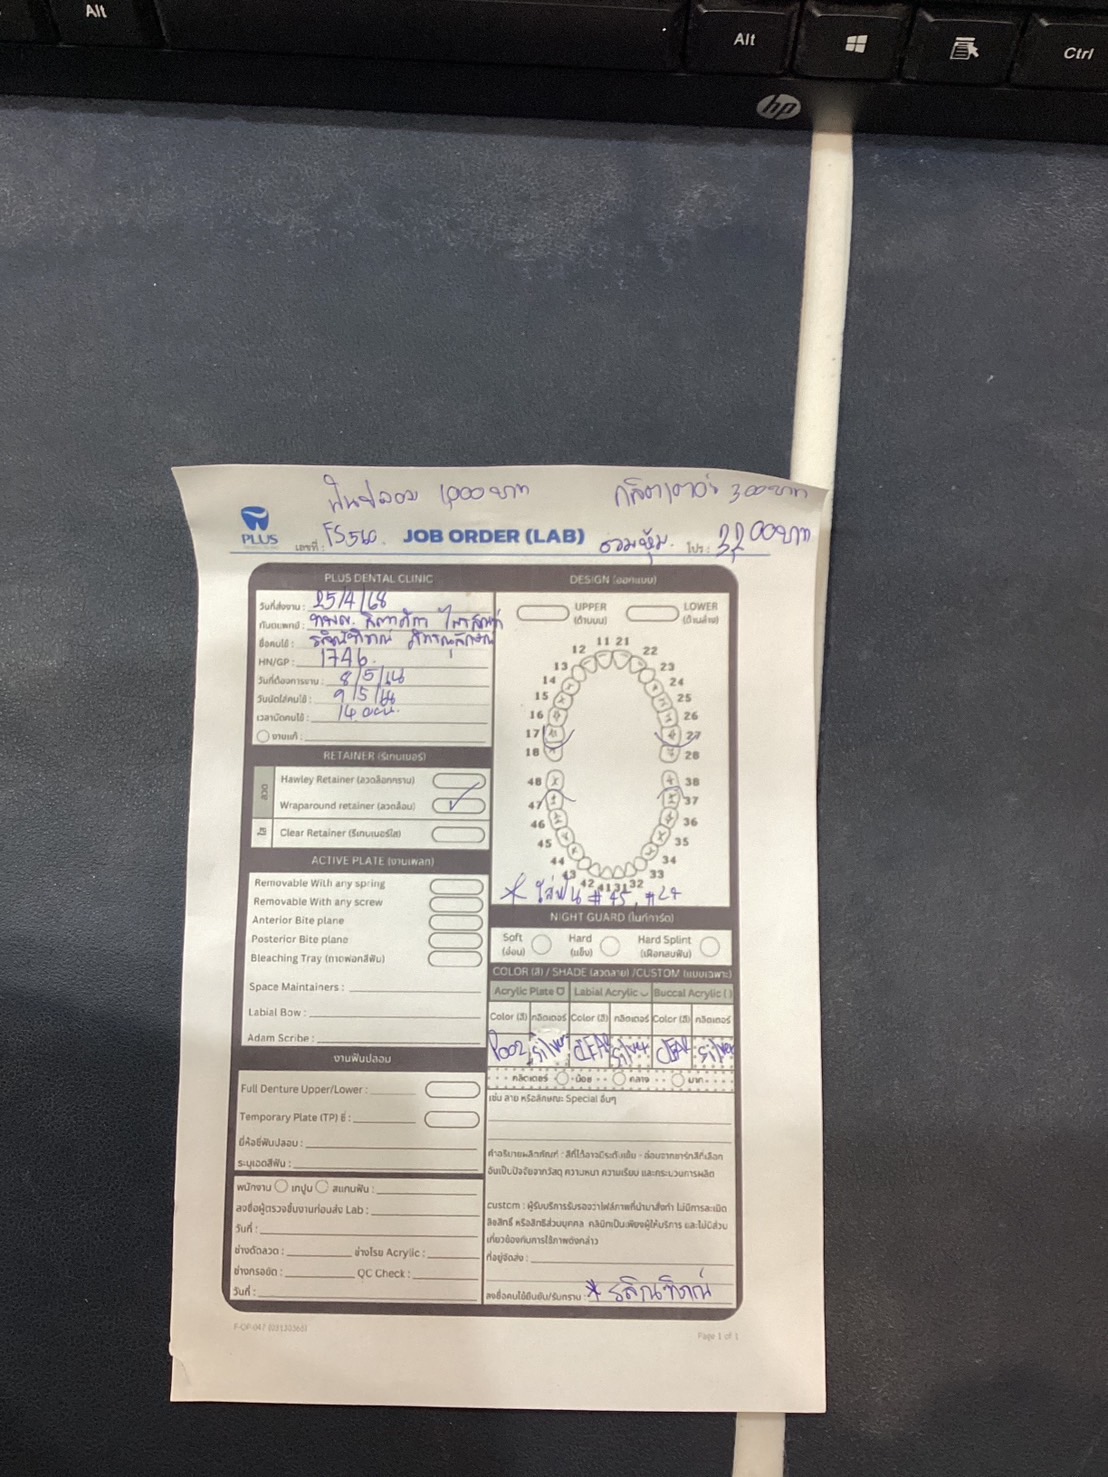 Alt
Alt
Ctrl
hp
ฟันปลอม 1,000 บาท
กลิตเตอร์ 300 บาท
PLUS
เลขที่ : FS560. JOB ORDER (LAB) รวมหุ้ม. โปร : 3,200 บาท
PLUS DENTAL CLINIC
วันที่ส่งงาน : 25/4/68
ทันตแพทย์ : ทพญ.
ชื่อคนไข้ :
HN/GP : 1746.
วันที่ต้องการงาน : 8/5/68
วันนัดใส่คนไข้ : 9/5/68
เวลานัดคนไข้ : 14.00น.
งานแก้ :
RETAINER (รีเทนเนอร์)
ลวด
Hawley Retainer (ลวดล็อกกราม)
Wraparound retainer (ลวดล้อม)
ใส
Clear Retainer (รีเทนเนอร์ใส)
ACTIVE PLATE (งานเพลท)
Removable With any spring
Removable With any screw
Anterior Bite plane
Posterior Bite plane
Bleaching Tray (ถาดฟอกสีฟัน)
Space Maintainers :
Labial Bow :
Adam Scribe :
งานฟันปลอม
Full Denture Upper/Lower :
Temporary Plate (TP) ซี่ :
ยี่ห้อซี่ฟันปลอม :
ระบุเฉดสีฟัน :
พนักงาน เทปูน สแกนฟัน :
ลงชื่อผู้ตรวจชิ้นงานก่อนส่ง Lab :
วันที่ :
ช่างดัดลวด : ช่างโรย Acrylic :
ช่างกรอขัด : QC Check :
วันที่ :
DESIGN (ออกแบบ)
UPPER (ด้านบน)
LOWER (ด้านล่าง)
11 21
12 22
13 23
14 24
15 25
16 26
17 27
18 28
48 38
47 37
46 36
45 35
44 34
43 33
42 41 31 32
* ใส่ฟัน #45, #24
NIGHT GUARD (ไนท์การ์ด)
Soft (อ่อน)
Hard (แข็ง)
Hard Splint (เฝือกสบฟัน)
COLOR (สี) / SHADE (ลวดลาย) /CUSTOM (แบบเฉพาะ)
Acrylic Plate Labial Acrylic Buccal Acrylic ( )
Color (สี) กลิตเตอร์ Color (สี) กลิตเตอร์ Color (สี) กลิตเตอร์
P002 Silver CLEAR Silver CLEAR Silver
กลิตเตอร์ น้อย กลาง มาก
เช่น ลาย หรือลักษณะ Special อื่นๆ
คำอธิบายผลิตภัณฑ์ : สีที่ได้อาจมีระดับเข้ม - อ่อนจากชาร์ทสีที่เลือก
อันเป็นปัจจัยจากวัสดุ ความหนา ความเรียบ และกระบวนการผลิต
custom : ผู้รับบริการรับรองว่าไฟล์ภาพที่นำมาสั่งทำ ไม่มีการละเมิด
ลิขสิทธิ์ หรือสิทธิส่วนบุคคล คลินิกเป็นเพียงผู้ให้บริการ และไม่มีส่วน
เกี่ยวข้องกับการใช้ภาพดังกล่าว
ที่อยู่จัดส่ง :
ลงชื่อคนไข้ยืนยัน/รับทราบ : *
Page 1 of 1